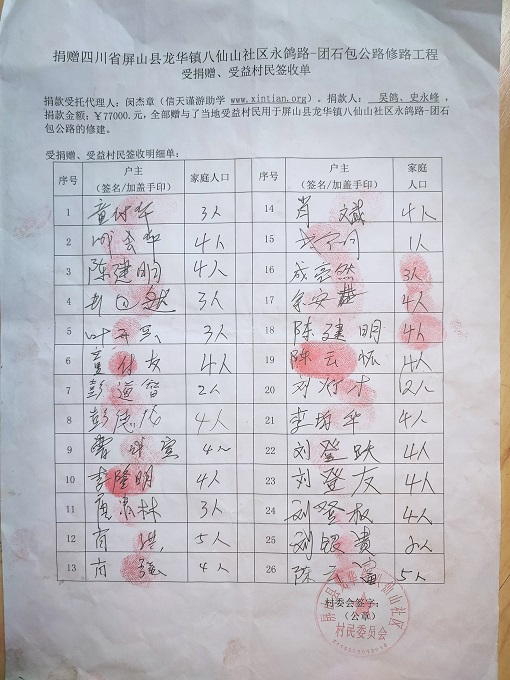 捐赠四川省屏山县龙华镇八仙山社区永鸽路-团石包公路修路工程
受捐赠、受益村民签收单
捐款受托代理人：闵杰章（信天谨游助学 www.xintian.org）。捐款人：吴鸽、史永峰，
捐款金额：￥77000.元，全部赠与了当地受益村民用于屏山县龙华镇八仙山社区永鸽路-团石
包公路的修建。
受捐赠、受益村民签收明细单：
序号 户主（签名/加盖手印） 家庭人口 序号 户主（签名/加盖手印） 家庭人口
1 3人 14 肖斌 4人
2 4人 15 1人
3 陈建明 4人 16 成亮然 3人
4 3人 17 余安 4人
5 3人 18 陈建明 4人
6 4人 19 陈云怀 4人
7 彭道智 2人 20 2人
8 彭德 4人 21 李 华 4人
9 4人 22 刘登跃 4人
10 李隆明 4人 23 刘登友 4人
11 林 3人 24 刘登 4人
12 肖 5人 25 刘银贵
13 肖 4人 26 陈 5人
村委会签字：
（公章）
屏山县龙华镇八仙山社区
村民委员会